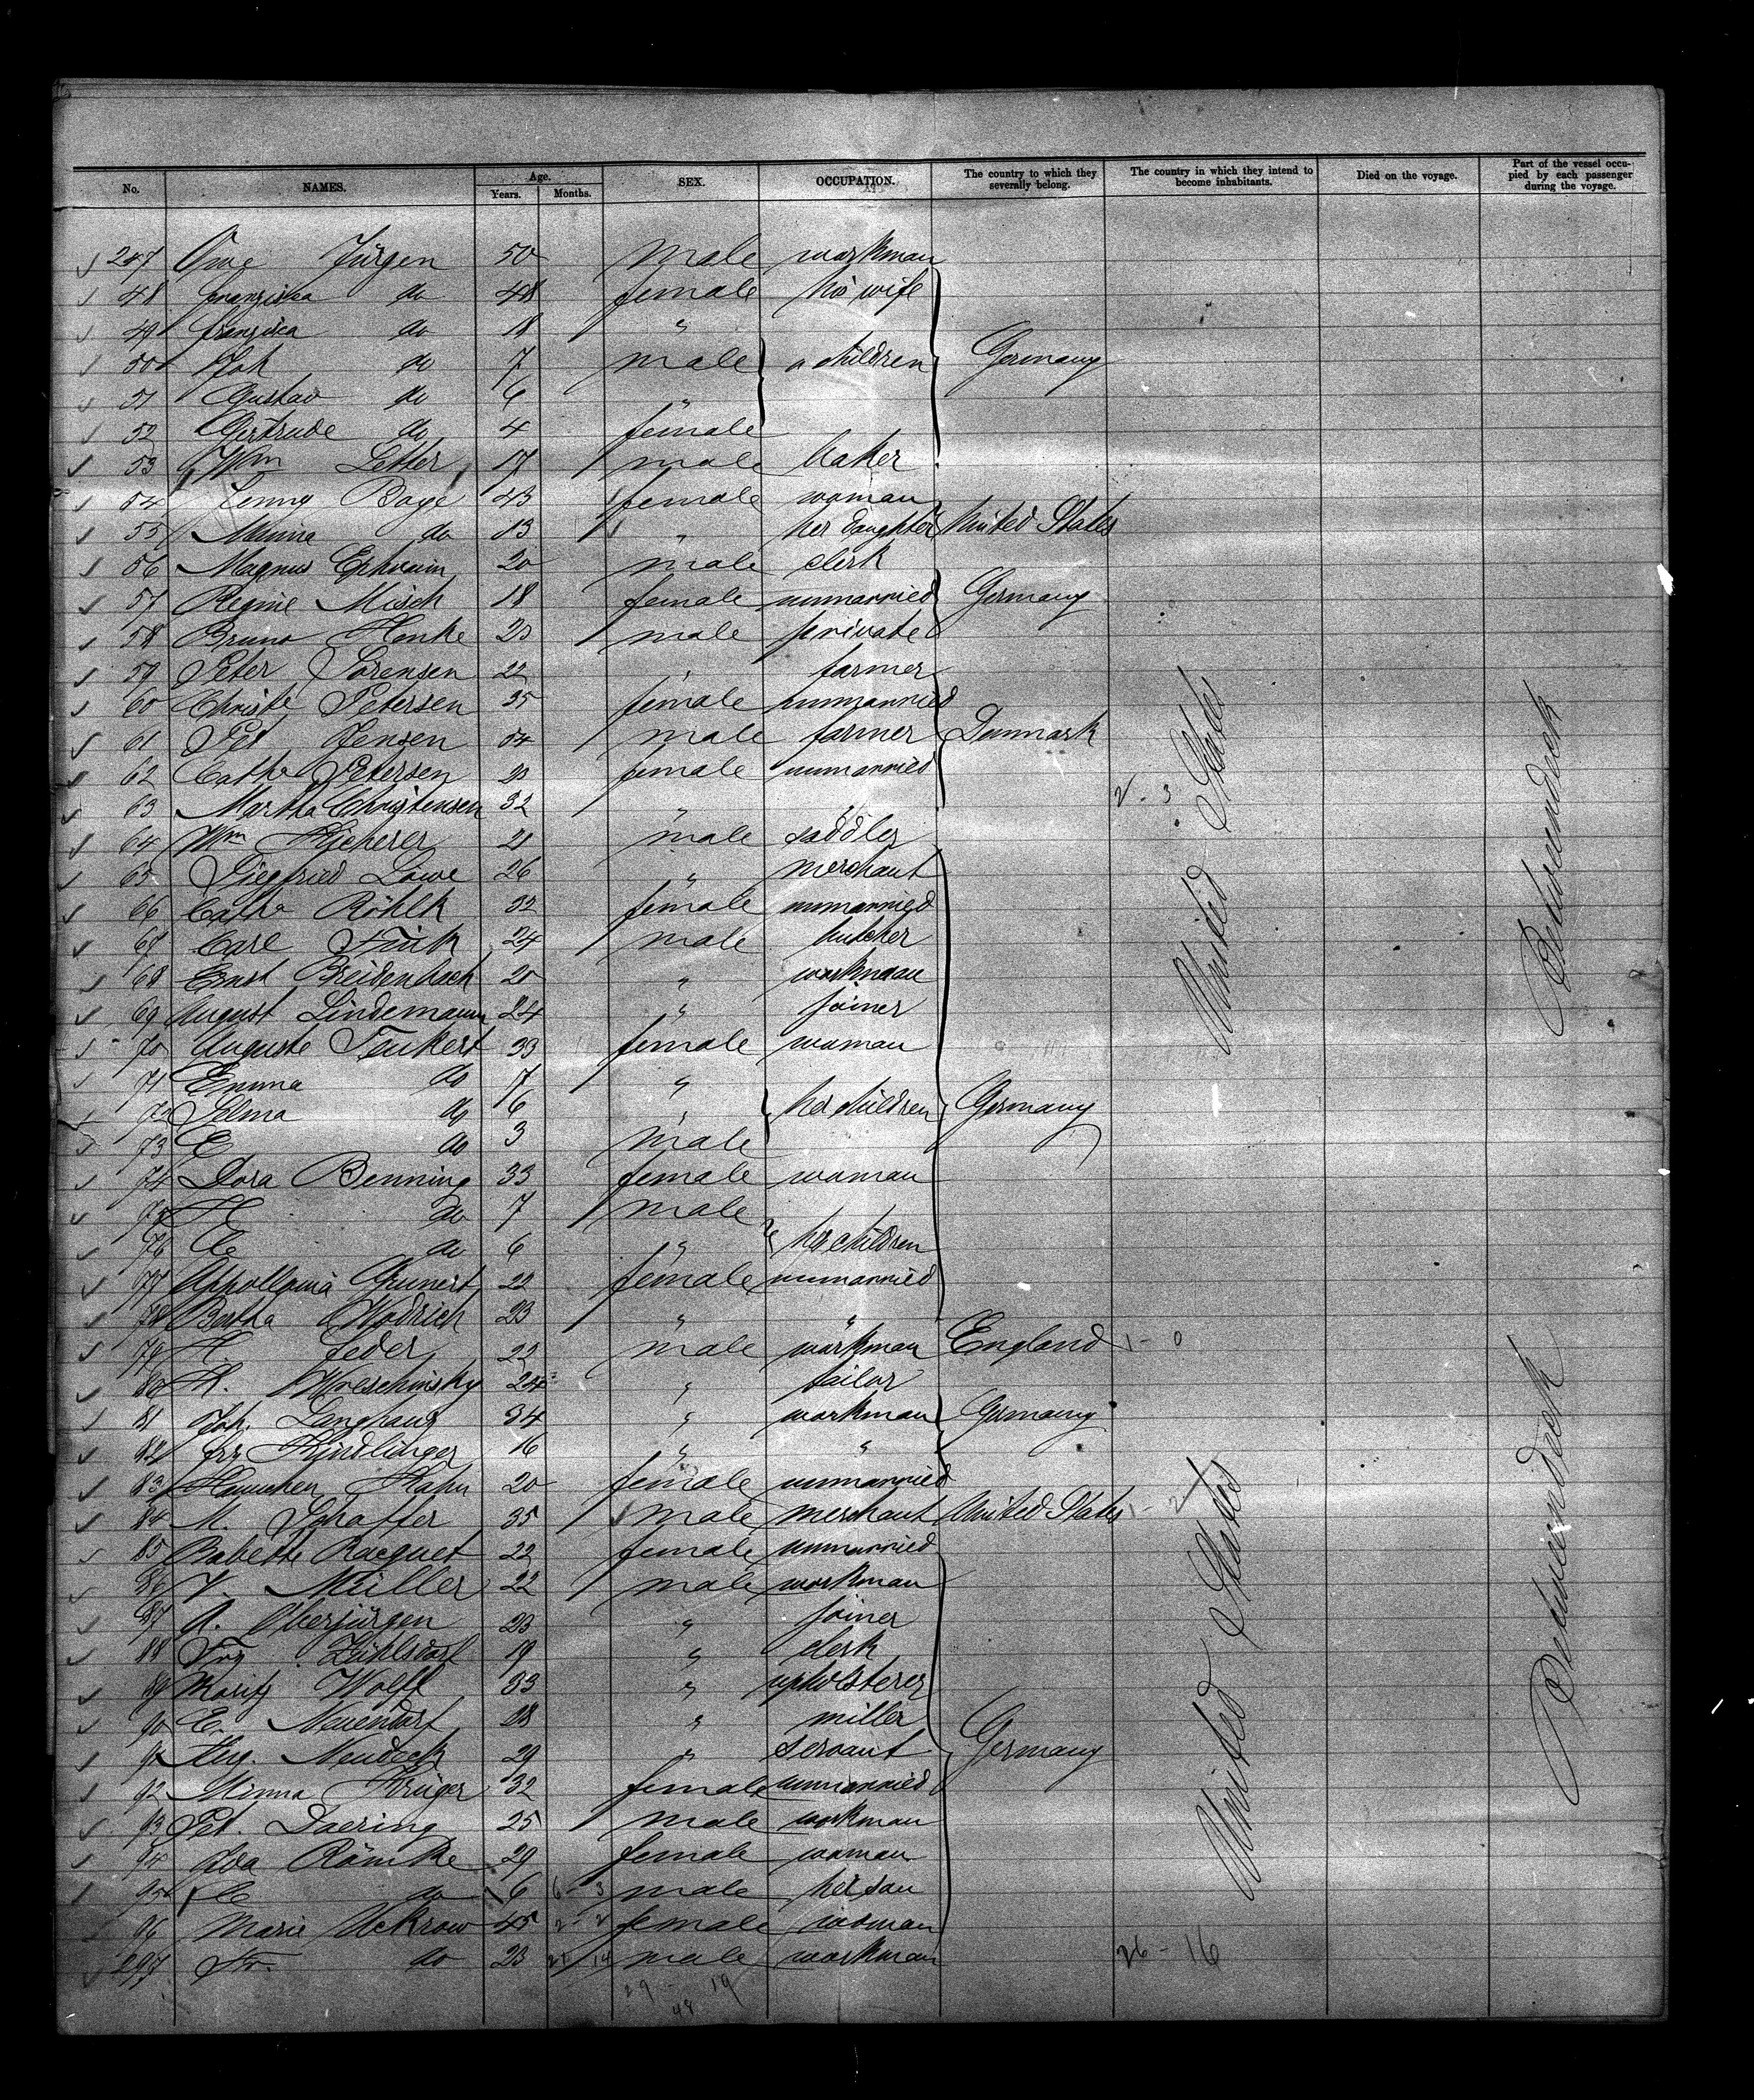 No. NAMES. Age. Years. Months. SEX. OCCUPATION. The country to which they severally belong. The country in which they intend to become inhabitants. Died on the voyage. Part of the vessel occupied by each passenger during the voyage.
247 Jürgen 50 male workman
48 Franziska do 48 female his wife
49 Franziska do 18 "
50 Joh do 7 male children Germany
51 Gustav do 6 "
52 Gertrude do 4 female
53 Wm Letter 17 male baker
54 Boye 43 female woman
55 Minna do 13 " her daughter United States
56 Magnus Ephraim 20 male clerk
57 Regine Misch 18 female unmarried Germany
58 Bruno Henke 20 male private
59 Peter Sörensen 22 " farmer
60 Christe Petersen 35 female unmarried
61 Pet Jensen 54 male farmer Denmark
62 Cathe Petersen 20 female unmarried
63 Martha Christensen 32 " "
64 Wm 21 male saddler
65 Siegfried Löwe 26 " merchant
66 Cathe Röhlk 32 female unmarried
67 Carl Fink 24 male butcher
68 Ernst Breidenbach 20 " workman
69 August Lindemann 24 " joiner
70 Auguste Teukert 33 female woman
71 Emma do 7 "
72 Selma do 6 " her children Germany
73 E do 3 male
74 Dora Benning 33 female woman
75 H do 7 male
76 C do 6 " her children
77 Appollonia Grunert 22 female unmarried
78 Bertha Wodrich 23 " "
79 H Feder 22 male workman England 1 - 0
80 H. Woleschinsky 24 " tailor
81 Joh. Langhans 34 " workman Germany
82 Frz Kindlinger 16 " "
83 Hannchen Kahn 20 female unmarried
84 M. Schaffer 35 male merchant United States 1 - 2
85 Babette Racquet 22 female unmarried
86 V. Müller 22 male workman
87 A. Oberjürgen 23 " joiner
88 Frz Zühlsdorf 19 " clerk
89 Moritz Wolff 33 " upholsterer
90 E. Neuendorf 28 " miller
91 Aug. Neudeck 29 " servant Germany
92 Minna Krüger 32 female unmarried
93 Pet. Doering 25 male workman
94 Ida Römke 29 female woman
95 C do 6 6 - 3 male her son
96 Marie Uckrow 45 2 - 2 female woman
297 Fr. do 23 21 14 male workman 26 - 16
29 - 19
48
2 - 3
United States
United States
Betweendeck
Betweendeck